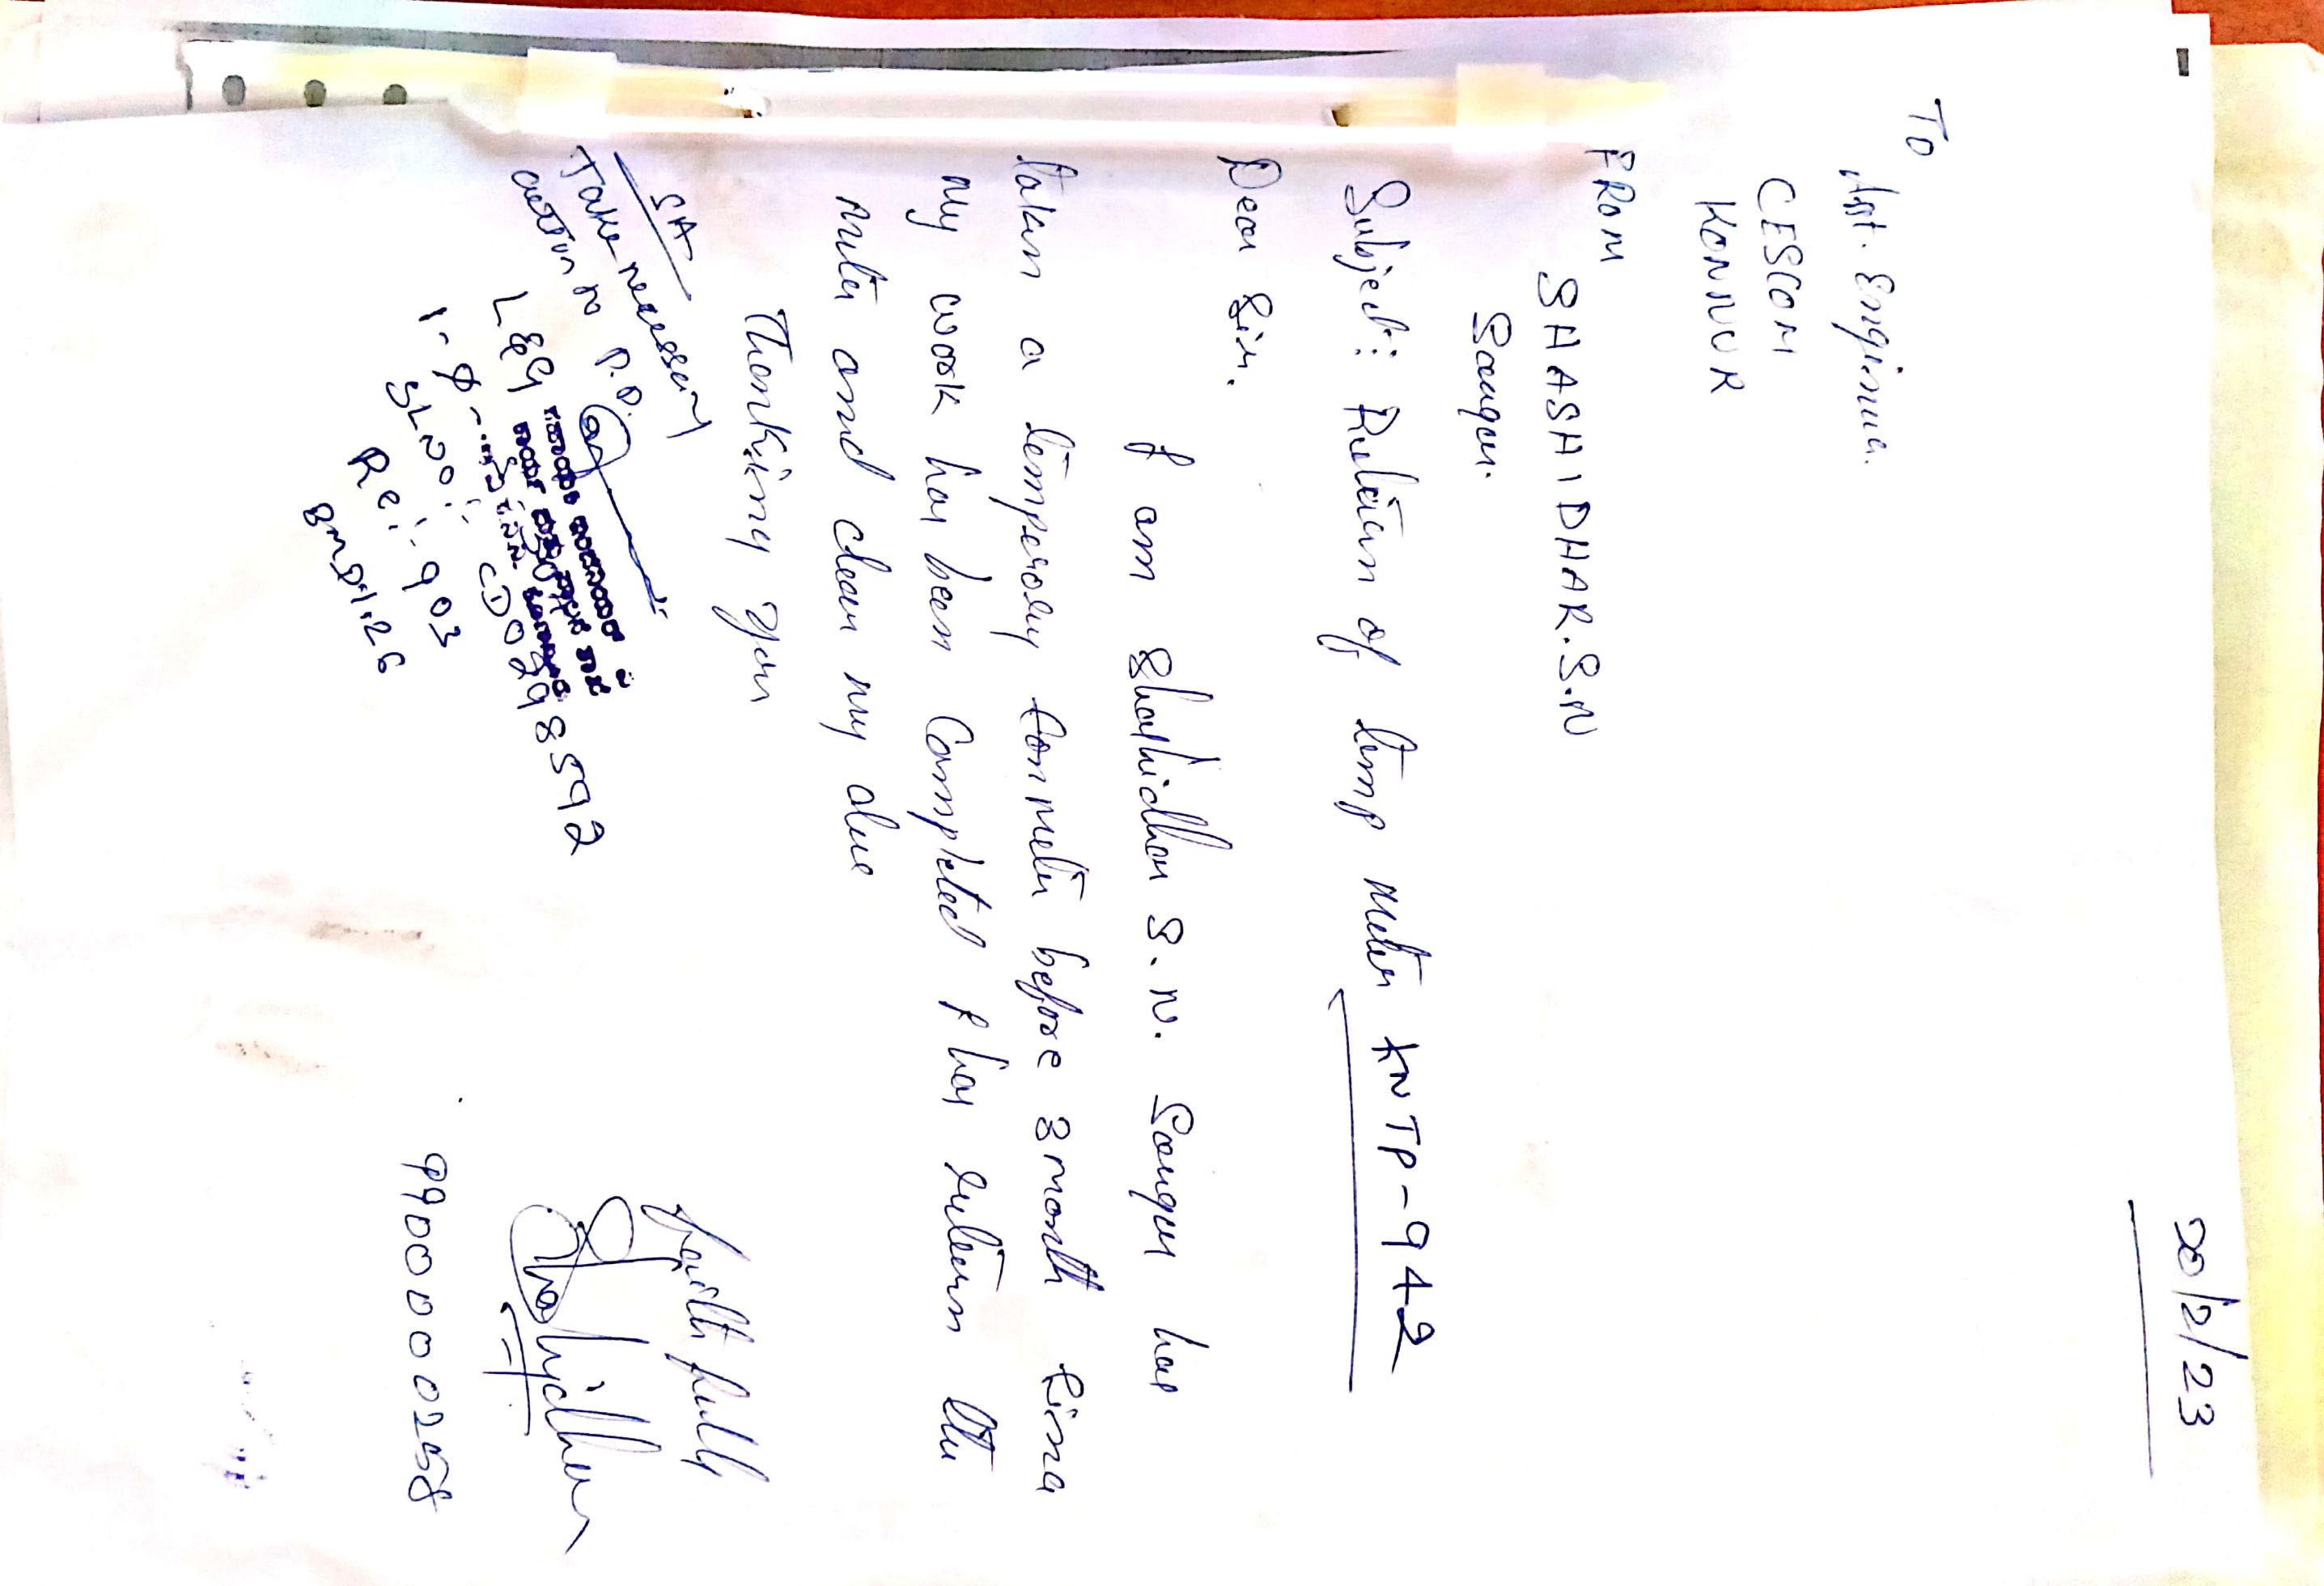 20/2/23
To
Asst. Engineer.
CESCOM
KONNUR
FROM
SHASHIDHAR.S.N
Subject: Return of temp meter KNTP-942
Dear Sir.
I am Shashidhar S.N. has
taken a temperory before 3 month
my work has been Completed I has return the
meter and clear my due
Thanking you
Faithfully
Shashidhar
9900000258
SA
Take necessary
action
P.D.
L&G
CD0298592
1-φ-
SL no:-
Re:- 903